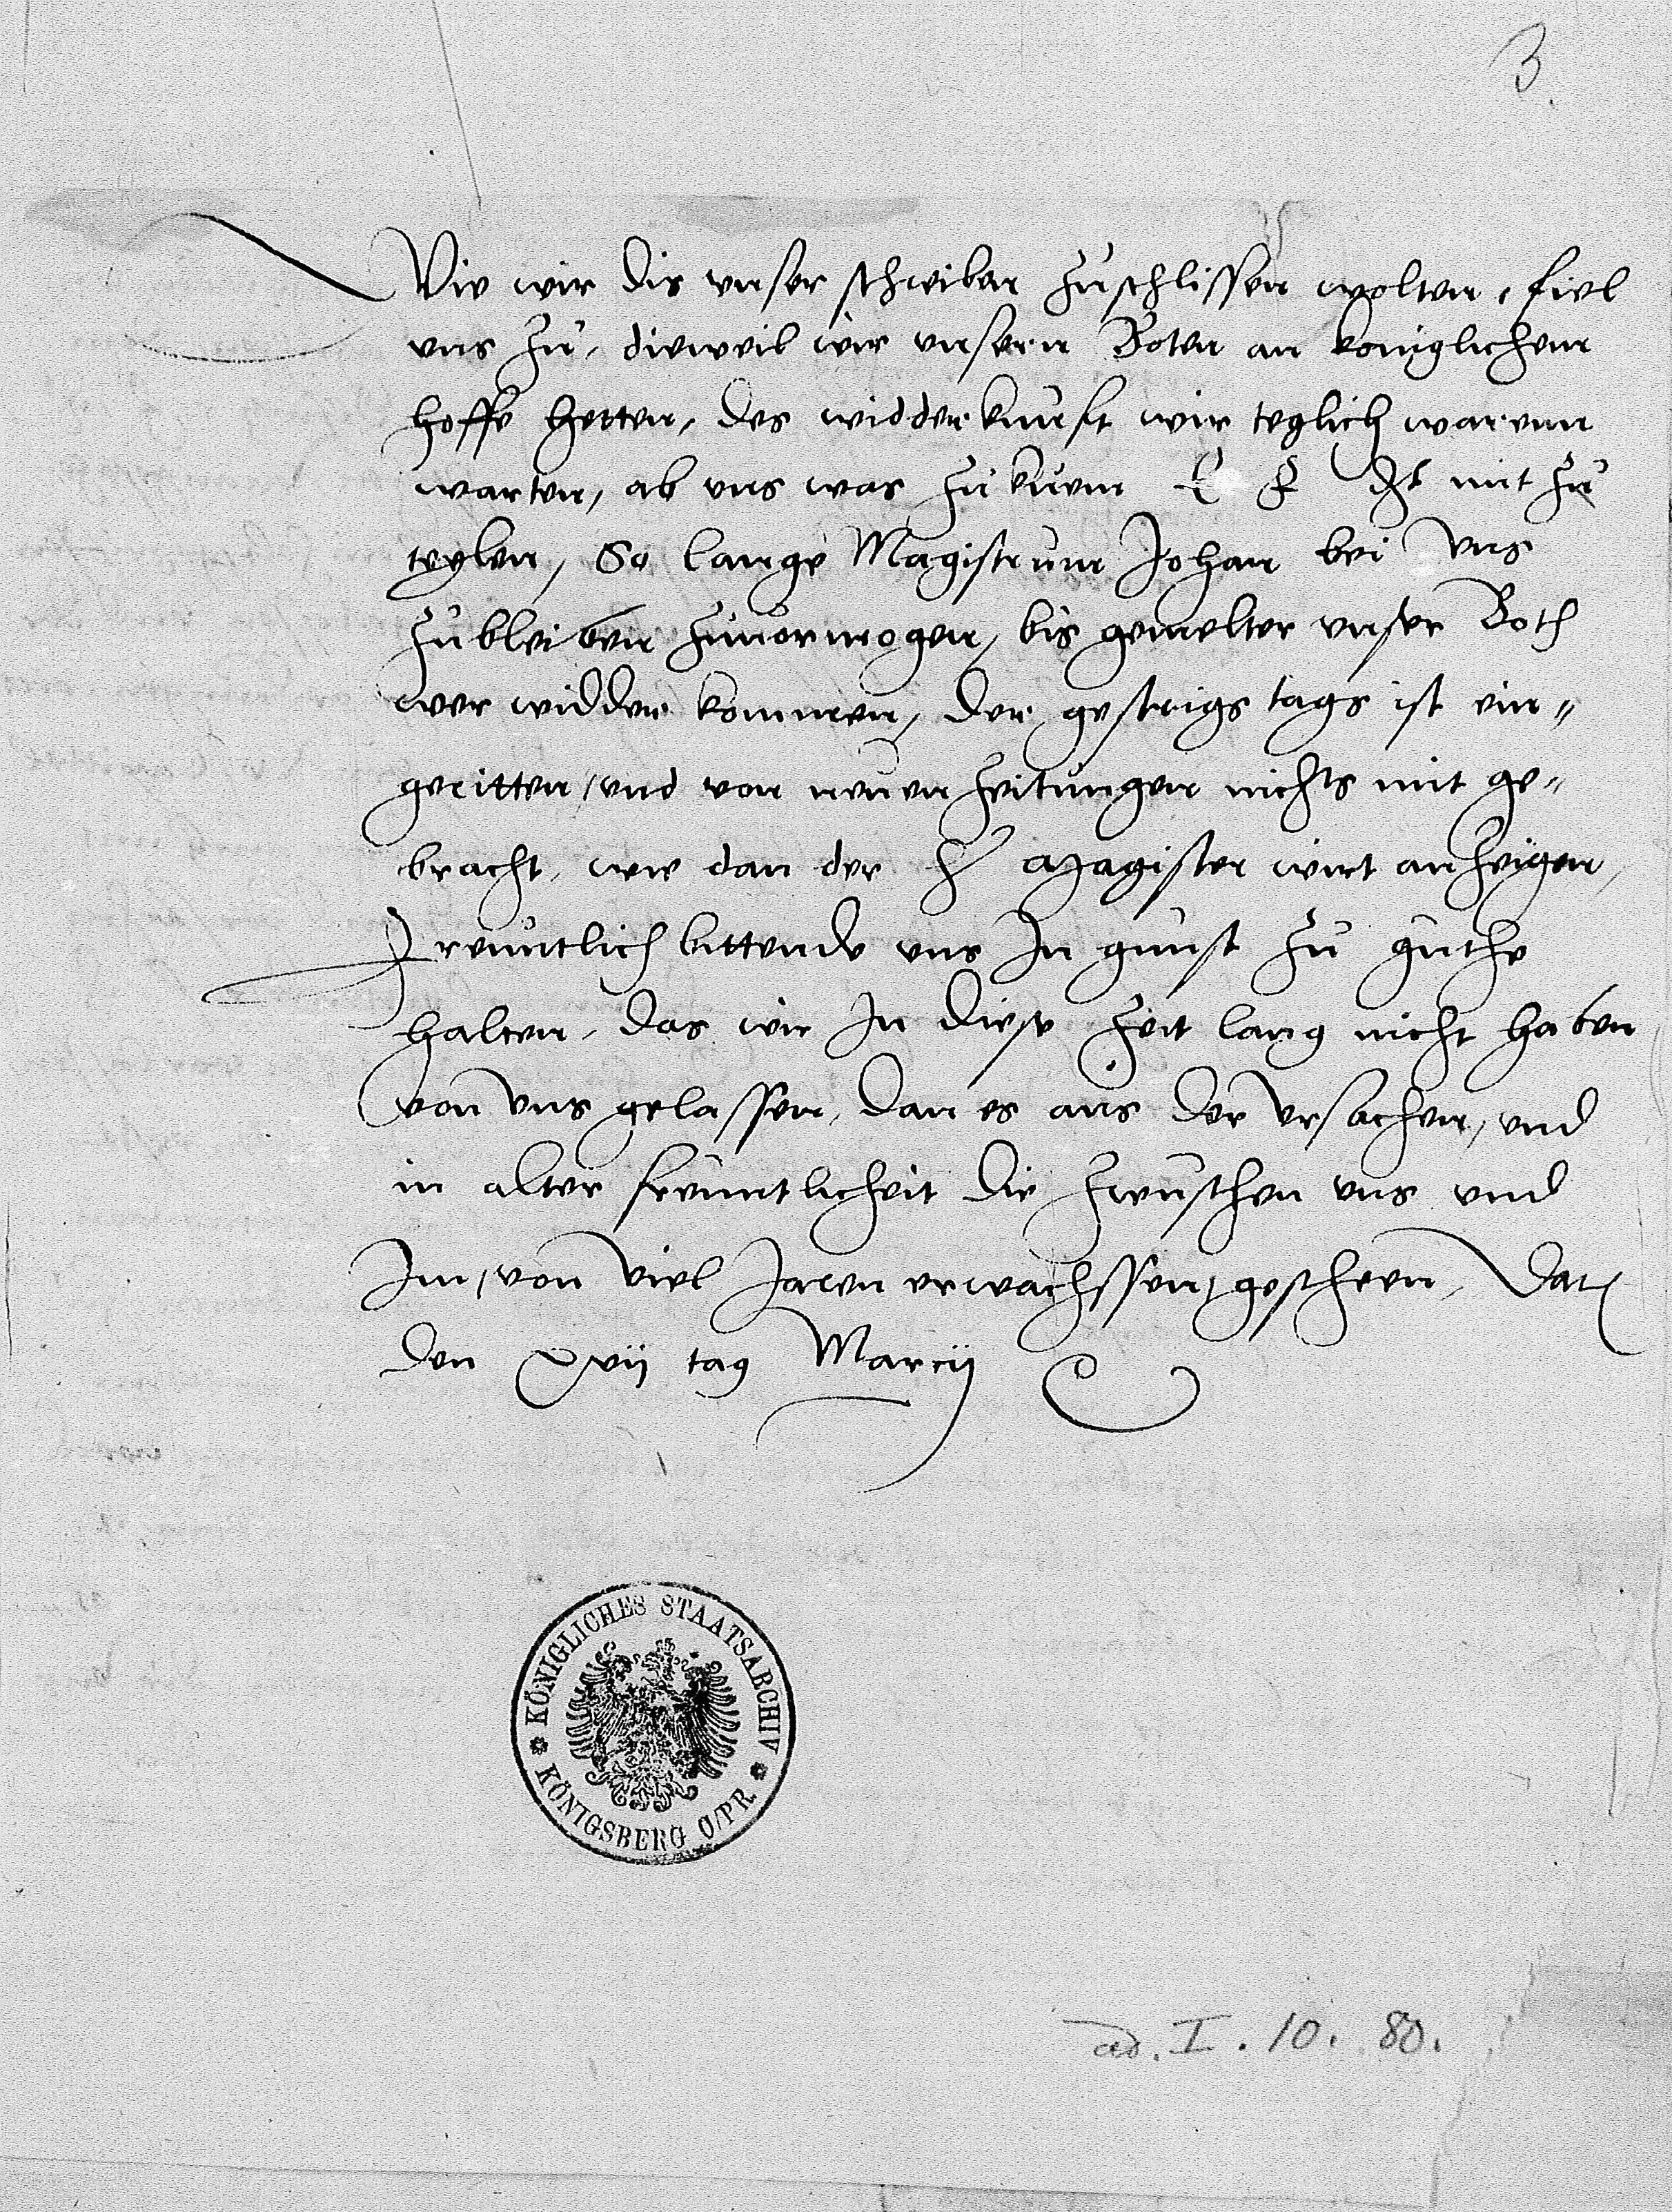 3.
Wie wir dis vnser schreiben zuschlissen wolten, fiel
vns zu, dieweil wir vnsern Boten an koniglichem
hoffe hetten, des widderkunft wir teglich warenn
warten, ab vns was zukueme E F D mit zu
teylen, So lange Magistrum Johan bei vns
zubleiben zuuormogen, bis gemelter vnser Both
wer widder kommen, der gestrigs tags ist ein„
geritten, vnd von neuen zeitungen nichts mit ge„
bracht, wie dan der H Magister wirt anzeigen,
Freuntlich bittende vns In gunst zu guthe
halten, das wir In diese zeit lang nicht haben
von vns gelassen, dan es aus der vrsachen, vnd
in alter freuntlicheit die zwuschen vns vnd
Im, von viel Jaren erwachssen, gescheen, Dat
den xvij tag Marcij
KÖNIGLICHES STAATSARCHIV
KÖNIGSBERG O/PR.
ad. I. 10. 80.